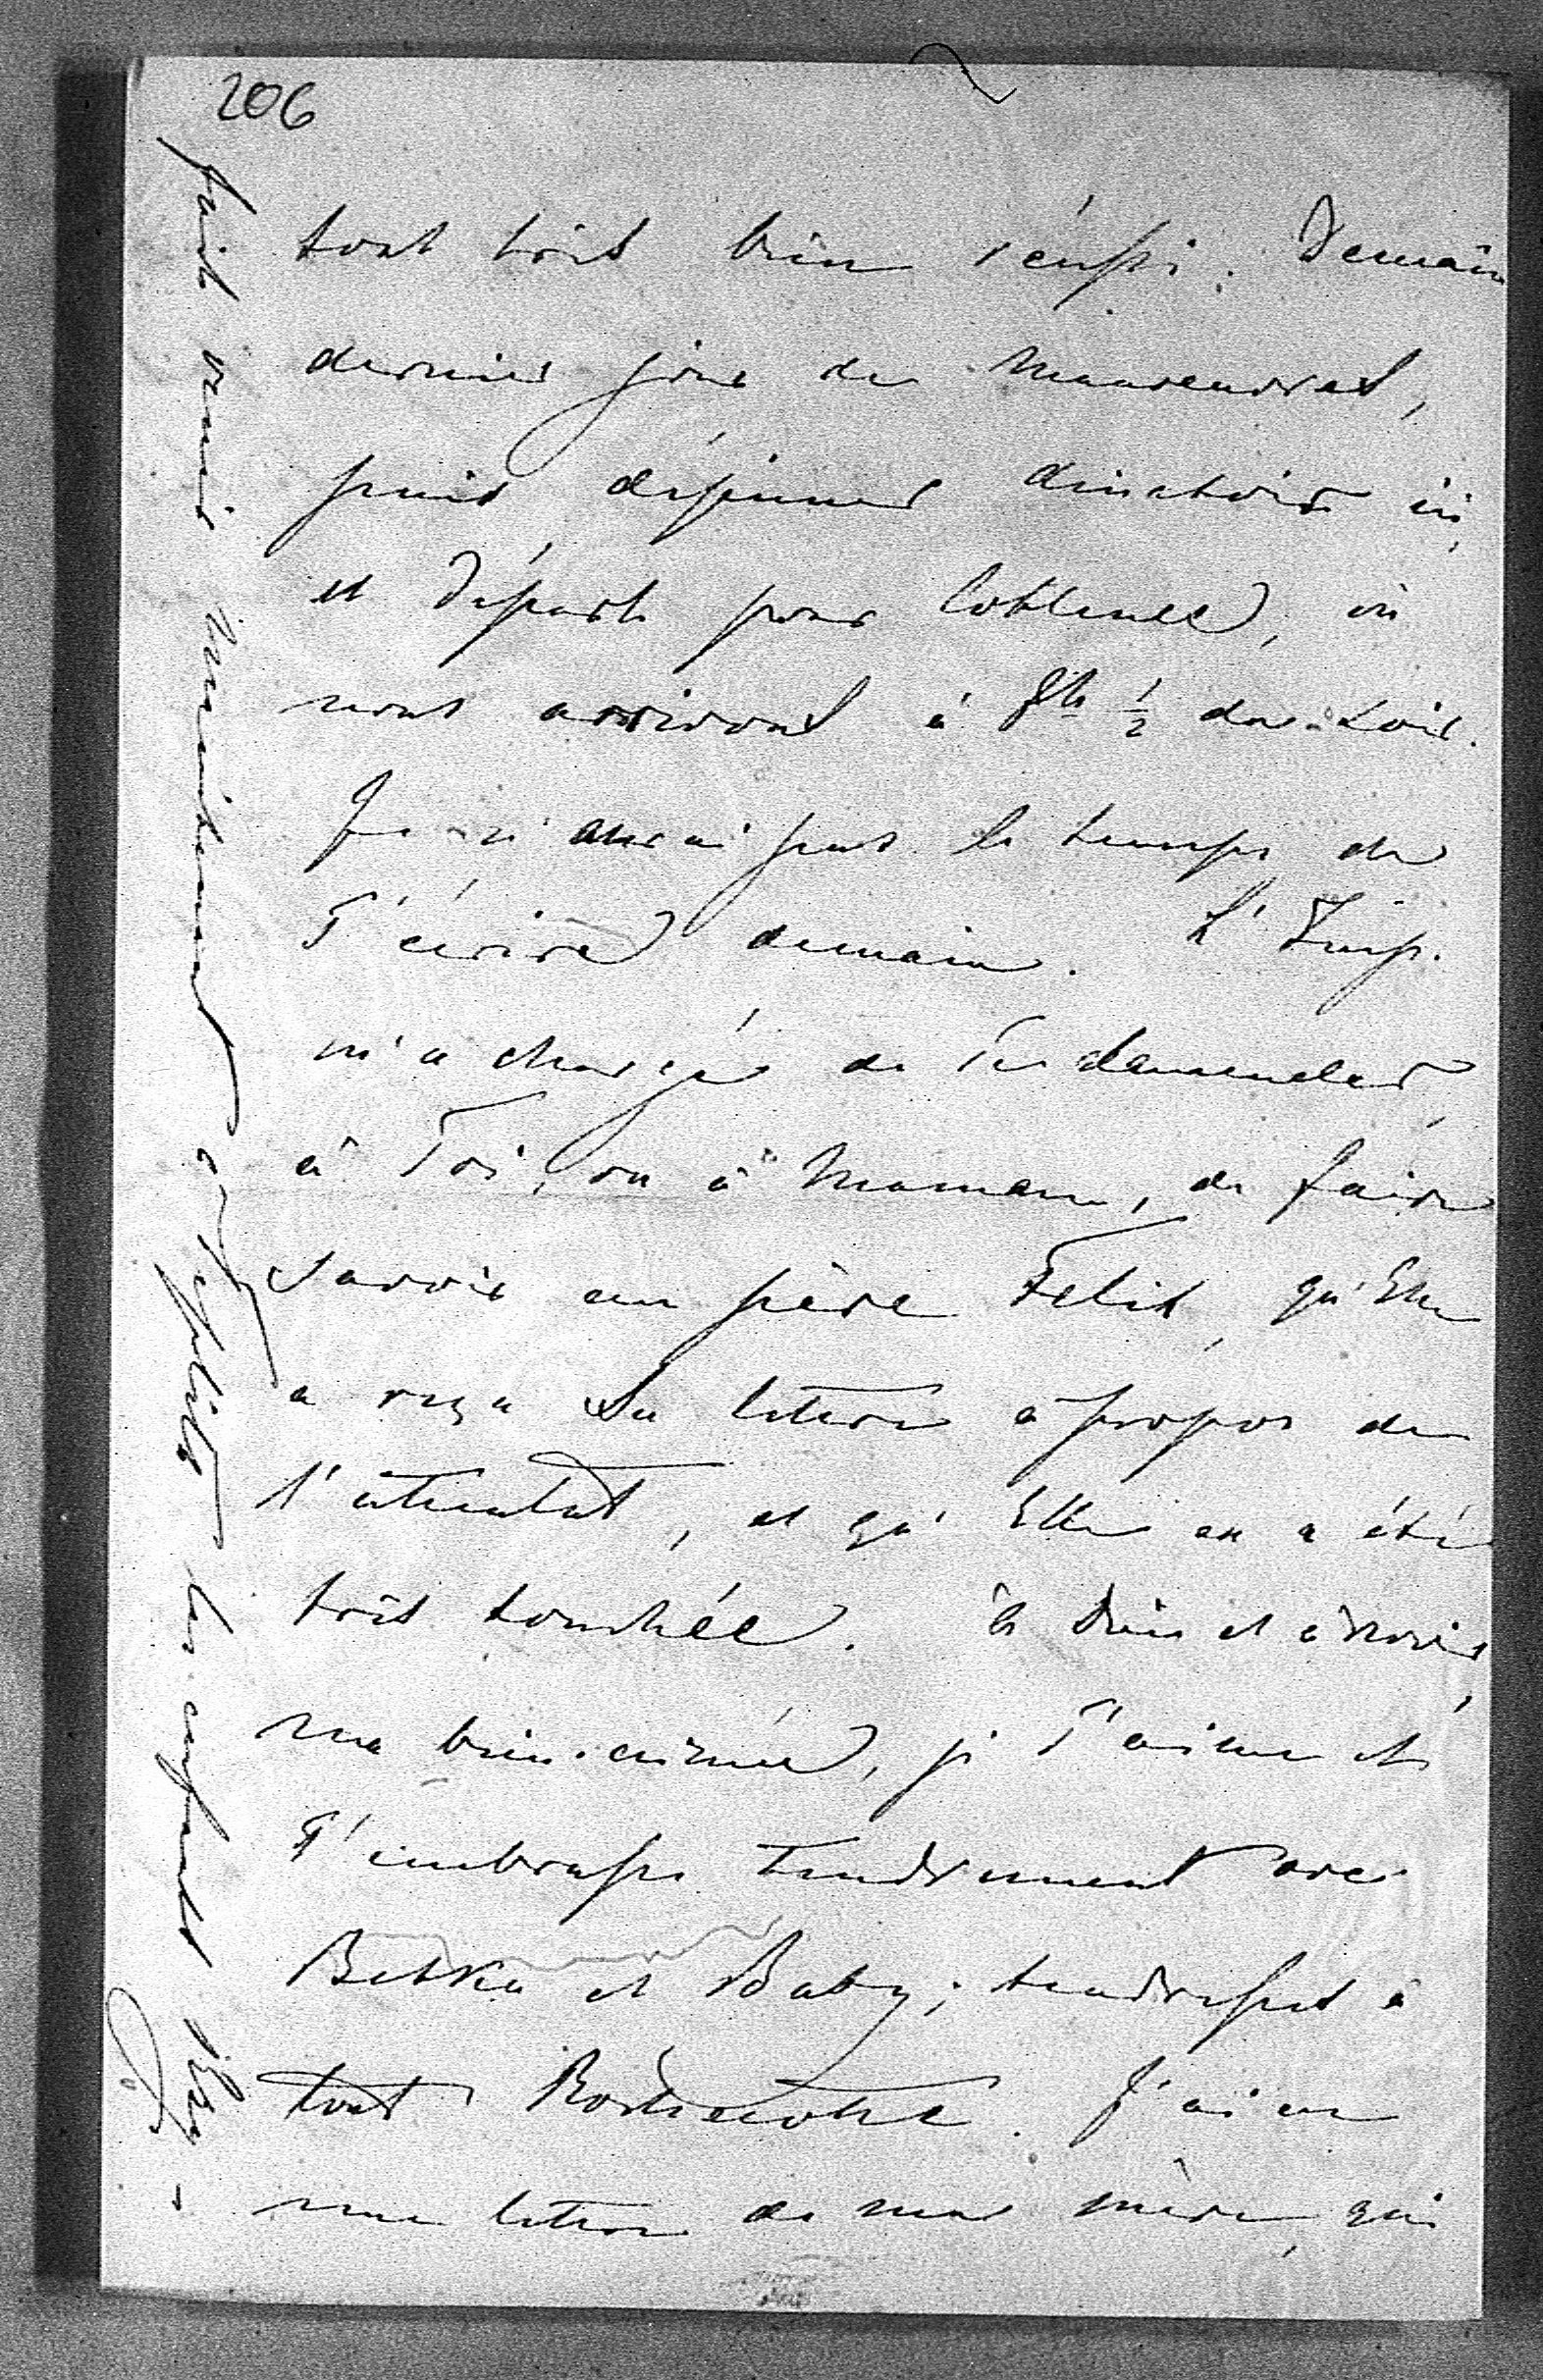 206
tout très bien réussi. Demain
dernier jour de manœuvres,
puis déjeuner dinatoire ici,
et départ pour Coblence, où
nous arrivons à 8h ½ du soir.
Je n'aurai pas le temps de
T'écrire demain. L'Imp.
m'a chargé de Te demander,
à Toi, ou à Maman, de faire
savoir au père Felix, qu'Elle
a reçu Sa lettre à propos de
l'attentat, et qu'Elle en a été
très touchée. à Dieu et à revoir,
ma bien-aimée, je T'aime et
T'embrasse tendrement avec
Betka et Baby; tendresses à
tout Rothestock. J'ai eu
une lettre de ma mère, qui
fait venir maintenant les enfants